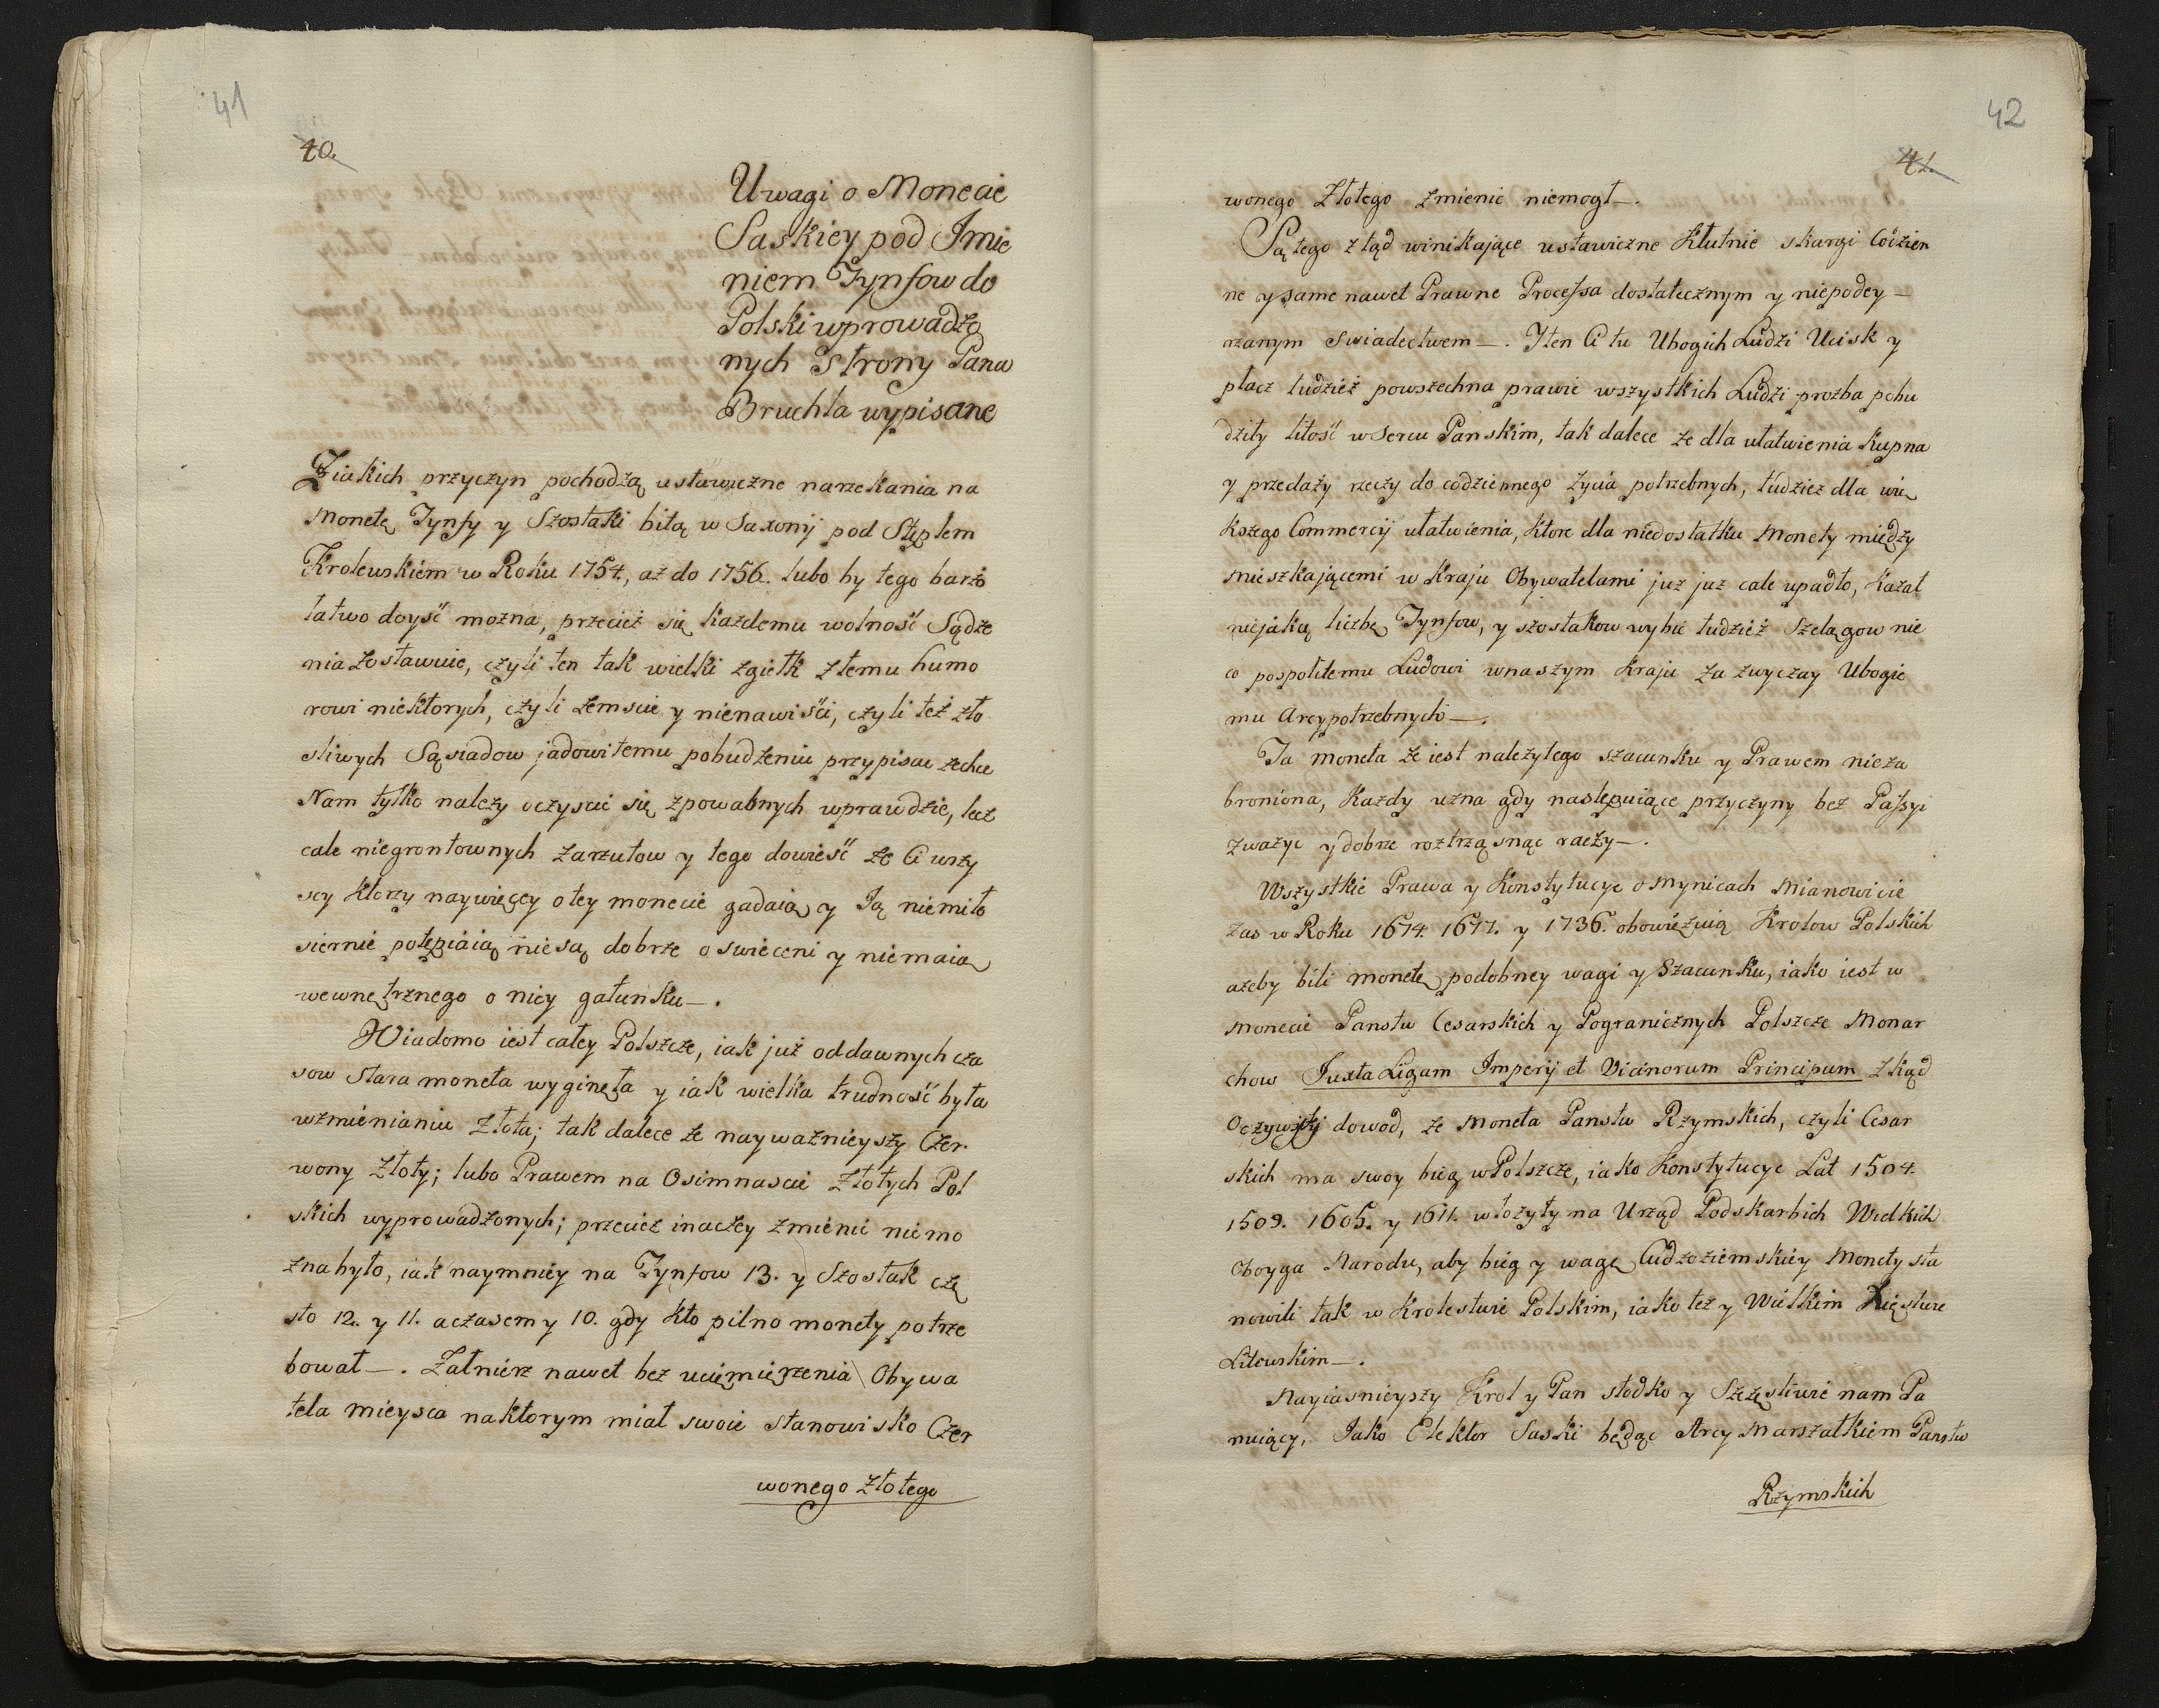 41
40.
Uwagi o Monecie
Saskiey pod Jmie
niem Tynfow do
Polski wprowadzo
nych Strony Pana
Bruchla wypisane
Z iakich przyczyn pochodzą ustawiczne narzekania na
Monetę Tynfy y Szostaki bitą w Saxonij pod Stęplem
Krolewskiem w Roku 1754, aż do 1756. lubo by tego barzo
łatwo doyść można, przecież się każdemu wolność Sądze
nia zostawuie, czyli ten tak wielki zgiełk złemu humo
rowi niektorych, czyli zemscie y nienawiści, czyli też zło
sliwych Sąsiadow jadowitemu pobudzeniu przypisac zechce
Nam tylko należy oczyscic się z powabnych wprawdzie, lecz
cale niegrontownych zarzutow y tego dowieść że Ci wszy
scy ktorzy naywięcey o tey monecie gadaią y Ją niemiło
siernie potępiaią nie są dobrze oswieceni y niemaią
wewnętrznego o niey gatunku—.
Wiadomo iest całey Polszcze, iak już oddawnych cza
sow stara moneta wyginęła y iak wielka trudność była
wzmienianiu Złota; tak dalece że nayważnieyszy Czer.
wony Złoty; lubo Prawem na Osimnascie Złotych Pol
skich wyprowadzonych; przecież inaczey zmienić niemo
zna było, iak naymniey na Tynfow 13. y Szostak czę
sto 12. y 11. a czasem y 10. gdy kto pilno monety potrze
bował—. Żałnierz nawet bez uciemiężenia Obywa
tela mieysca na ktorym miał swoie stanowisko Czer
wonego złotego
42
41.
wonego Złotego zmienić niemogł—.
Są tego ztąd winikaiące ustawiczne Kłutnie skargi Codzien
ne y same nawet Prawne Processa dostatecznym y niepodey—
rzanym swiadectwem—. Y ten Ci tu Ubogich Ludzi Ucisk y
płacz tudzież powszechna prawie wszystkich Ludzi prozba pobu
dziły litość w Sercu Panskim, tak dalece że dla ułatwienia Kupna
y przedaży rzeczy do codziennego życia potrzebnych, tudzież dla wię
kszego Commercij ułatwienia, ktore dla niedostatku Monety między
mieszkającemi w Kraju Obywatelami już już cale upadło, Kazał
niejaką liczbę Tynfow, y szostakow wybić tudzież Szelągow nie
co pospolitemu Ludowi w naszym Kraju za zwyczay Ubogie
mu Arcypotrzebnych—.
Ta moneta że iest należytego szacunku y Prawem nieza
broniona, Każdy uzna gdy następuiące przyczyny bez Passyi
zważyc y dobrze roztrząsnąc raczy—.
Wszystkie Prawa y Konstytucye o Mynicach Mianowicie
zas w Roku 1674. 1677. y 1736. obowięzuią Krolow Polskich
ażeby bili monetę podobney wagi y Szacunku, iako iest w
Monecie Panstw Cesarskich y Pogranicznych Polszcze Monar
chow Juxta Ligam Imperij et Vicinorum Principum Zkąd
Oczywisty dowod, że Moneta Panstw Rzymskich, czyli Cesar
skich ma swoy bieg w Polszcze, iako Konstytucye Lat 1504.
1509. 1605. y 1611. włożyły na Urząd Podskarbich Wielkich
Oboyga Narodu, aby bieg y wagę Cudzoziemskiey Monety sta
nowili tak w Krolestwie Polskim, iako też y Wielkim Xięstwie
Litewskim—.
Nayiasnieyszy Krol y Pan słodko y Szczęsliwie nam Pa
nuiący, Jako Elektor Saski będąc Arcy Marszałkiem Panstw
Rzymskich